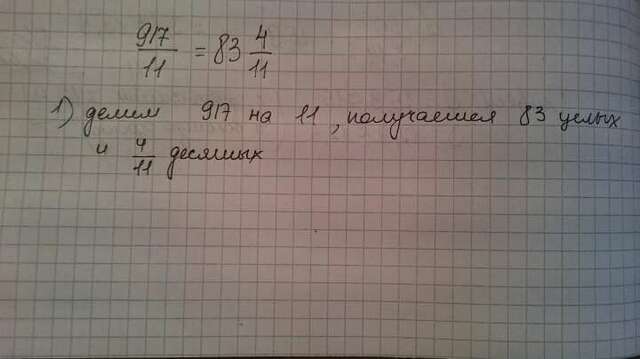 917/11 = 83 4/11
1) делим 917 на 11, получается 83 целых
и 4/11 десятых